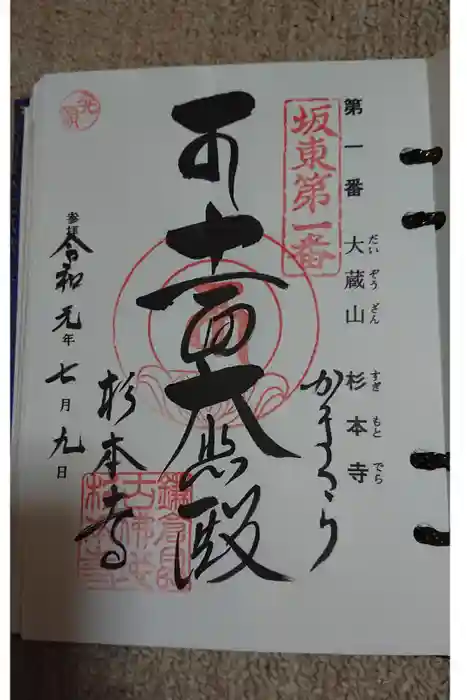 第一番 大蔵山 杉本寺
だいぞうざん すぎもとでら
坂東第一番
かまくら
十一面大悲殿
杉本寺
参拝 令和元年七月九日